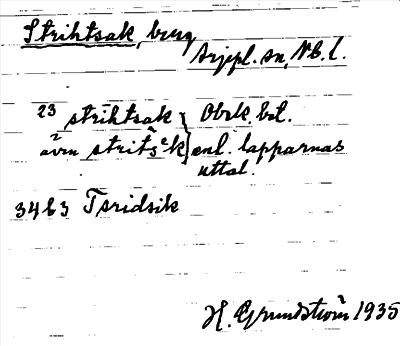 Strihtsak, berg
Arjepl. sn, Nb. l.
23 strihtsak } Obek. bet.
2
även stritsek } enl. lapparnas
uttal.
3463 Tsridsik
H. Grundström 1935